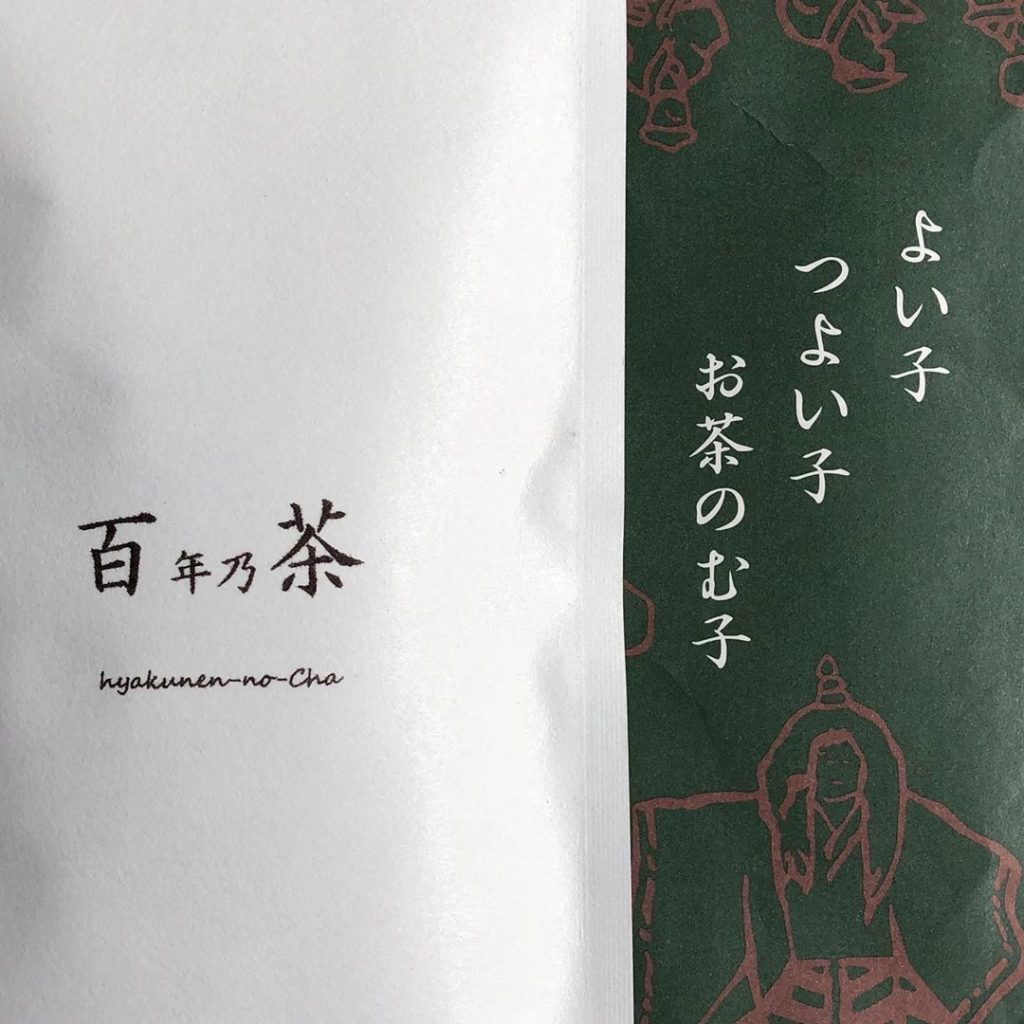 百年乃茶
hyakunen-no-Cha
よい子
つよい子
お茶のむ子